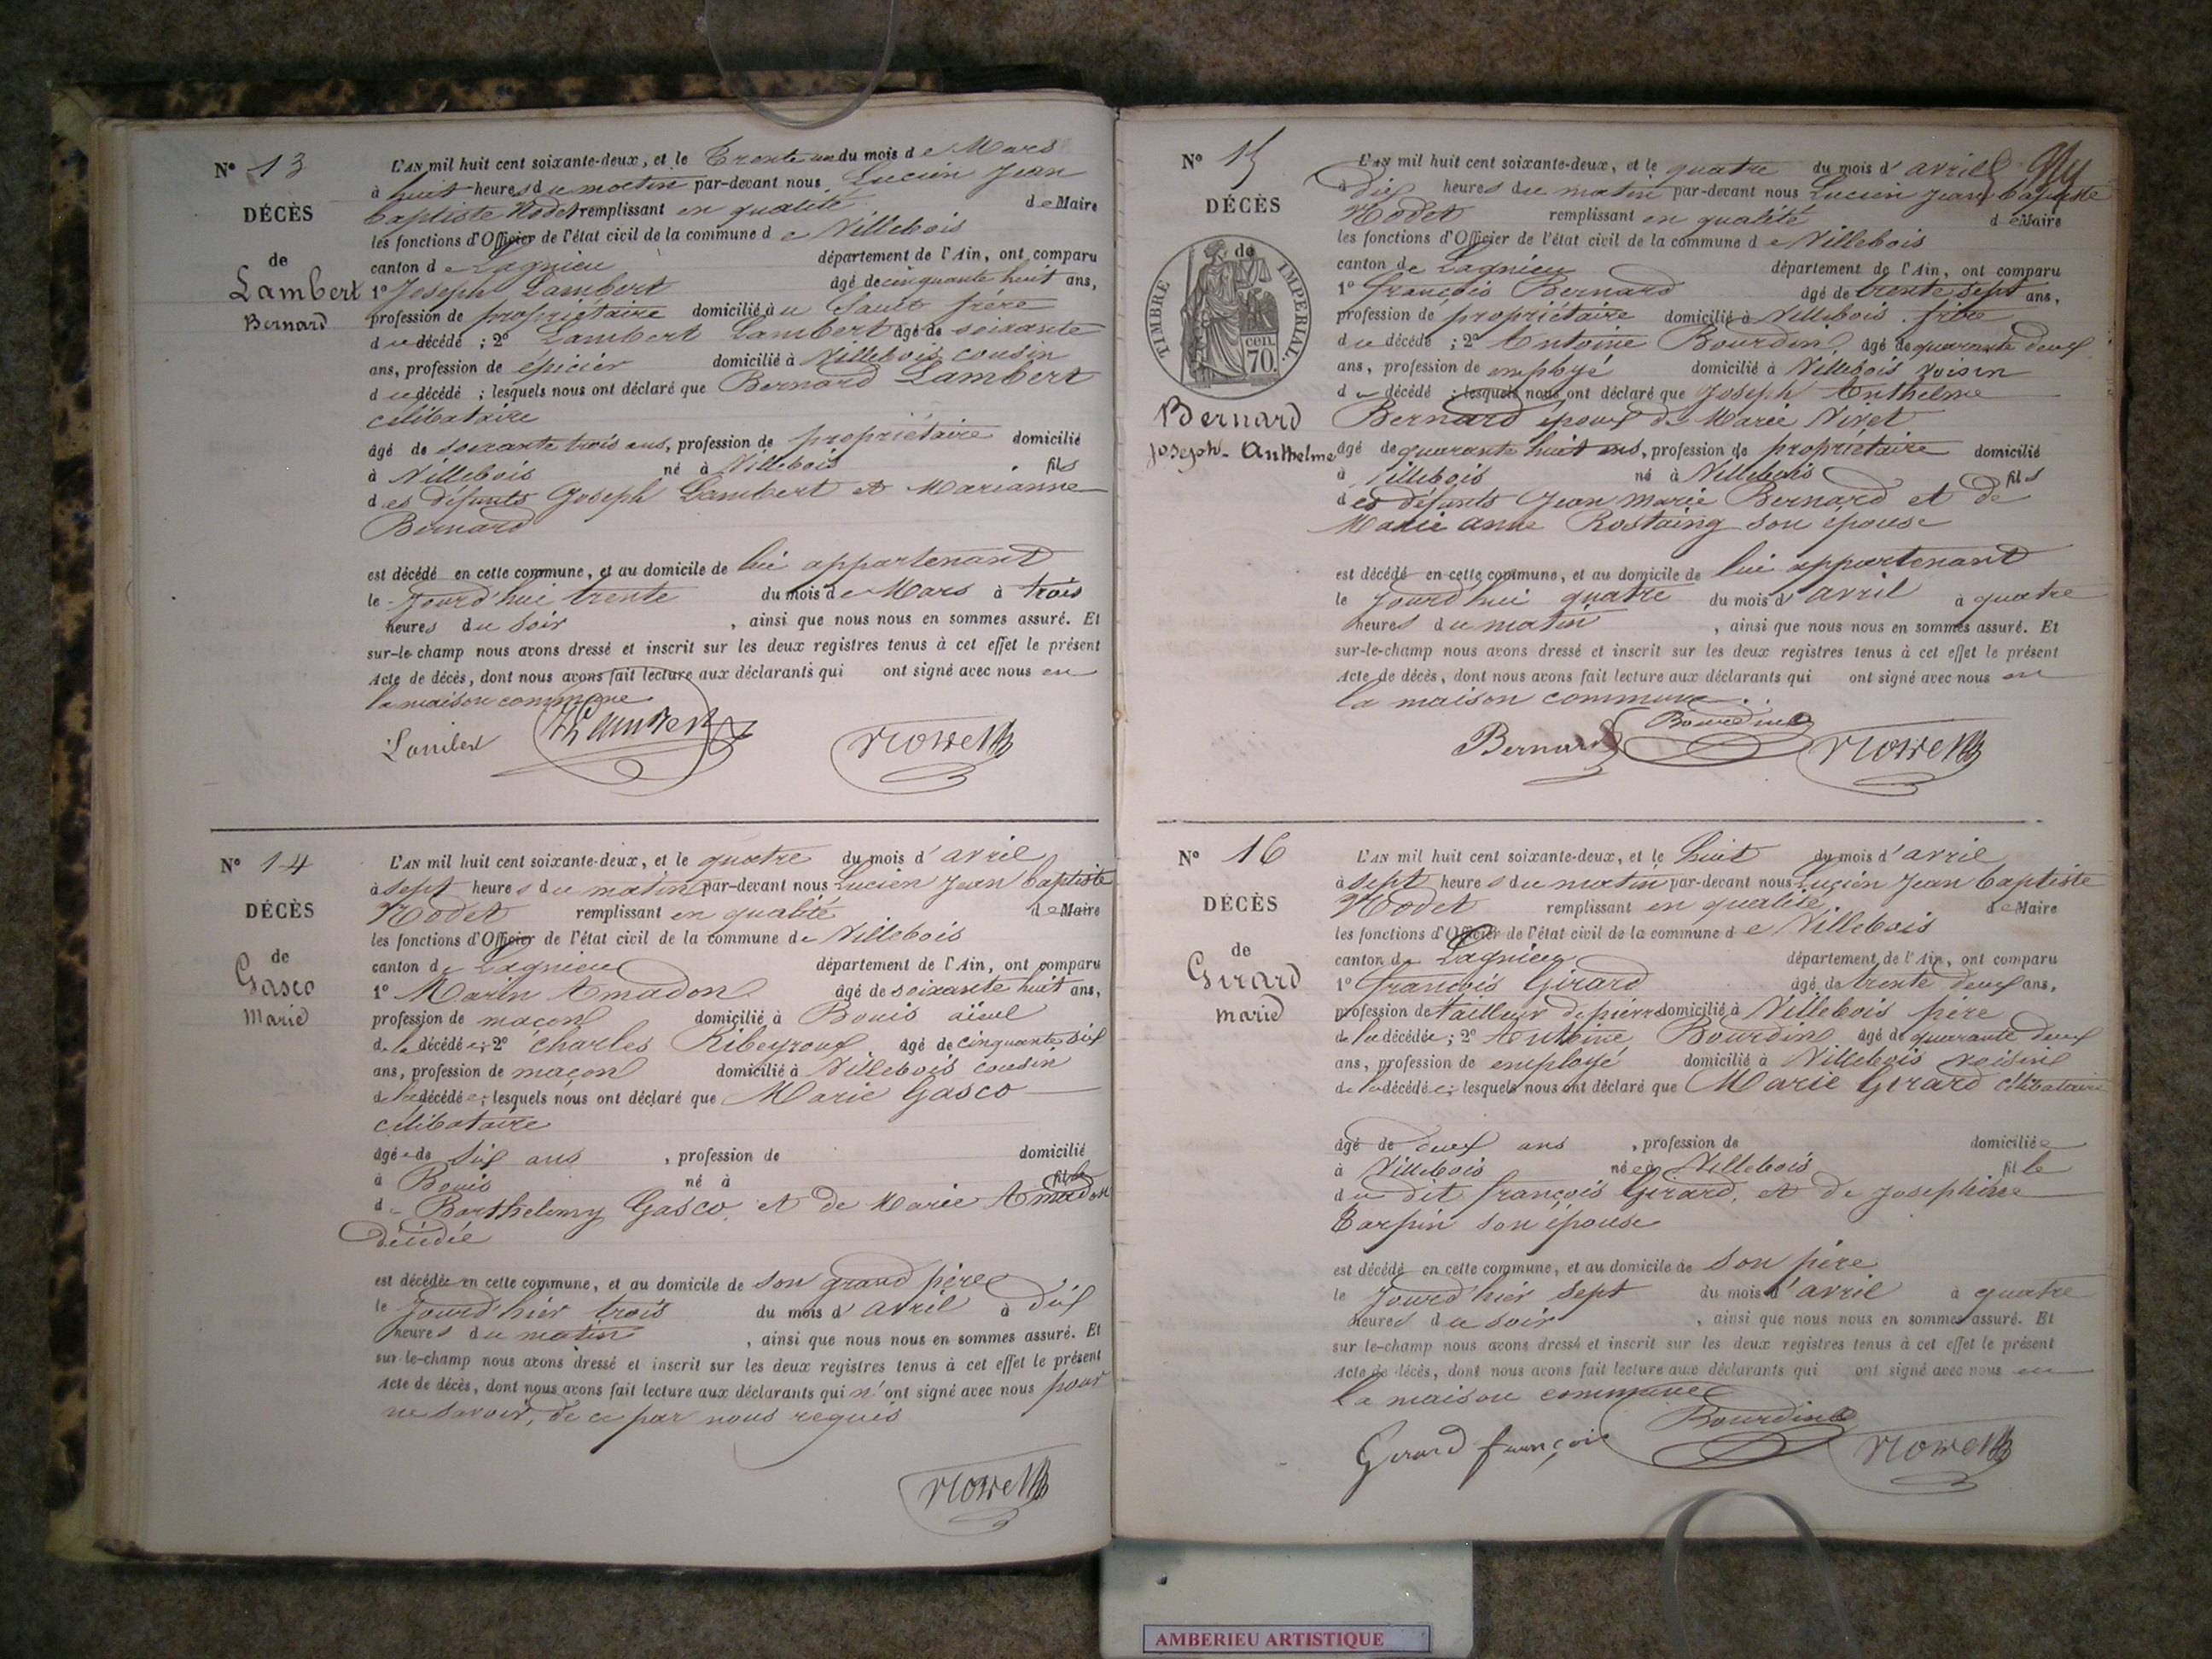 N° 13
DÉCÈS
de
Lambert
Bernard
L'AN mil huit cent soixante-deux, et le Trente un du mois de Mars
à huit heures du matin par-devant nous Lucien Jean
baptiste Rodet remplissant en qualité de Maire
les fonctions d'Officier de l'état civil de la commune de Villebois
canton de Lagnieu département de l'Ain, ont comparu
1° Joseph Lambert âgé de cinquante huit ans,
profession de propriétaire domicilié au Sault frère
du décédé ; 2° Lambert Lambert âgé de soixante
ans, profession de épicier domicilié à Villebois cousin
du décédé ; lesquels nous ont déclaré que Bernard Lambert
célibataire
âgé de soixante trois ans, profession de propriétaire domicilié
à Villebois né à Villebois fils
des défunts Joseph Lambert et Marianne
Bernard
est décédé en cette commune, et au domicile de lui appartenant
le jourd'hui trente du mois de Mars à trois
heures du soir , ainsi que nous nous en sommes assuré. Et
sur-le-champ nous avons dressé et inscrit sur les deux registres tenus à cet effet le présent
Acte de décès, dont nous avons fait lecture aux déclarants qui ont signé avec nous en
la maison commune
Lambert
N° 14
DÉCÈS
de
Gasco
Marie
L'AN mil huit cent soixante-deux, et le quatre du mois d'avril
à sept heures du matin par-devant nous Lucien Jean baptiste
Rodet remplissant en qualité de Maire
les fonctions d'Officier de l'état civil de la commune de Villebois
canton de Lagnieu département de l'Ain, ont comparu
1° Marin Amadon âgé de soixante huit ans,
profession de maçon domicilié à Bouis aïeul
de la décédée ; 2° Charles Ribeyroux âgé de cinquante six
ans, profession de maçon domicilié à Villebois cousin
de la décédée ; lesquels nous ont déclaré que Marie Gasco
célibataire
âgée de six ans , profession de domicilié
à Bouis né à fille
de Barthelemy Gasco et de Marie Amadon
décédée
est décédée en cette commune, et au domicile de son grand père
le jourd'hier trois du mois d'avril à dix
heures du matin , ainsi que nous nous en sommes assuré. Et
sur-le-champ nous avons dressé et inscrit sur les deux registres tenus à cet effet le présent
Acte de décès, dont nous avons fait lecture aux déclarants qui n'ont signé avec nous pour
ne savoir, de ce par nous requis
N° 15
DÉCÈS
de
TIMBRE IMPÉRIAL.
cen.
70.
Bernard
Joseph-Anthelme
L'AN mil huit cent soixante-deux, et le quatre du mois d'avril
à dix heures du matin par-devant nous Lucien Jean baptiste
Rodet remplissant en qualité de Maire
les fonctions d'Officier de l'état civil de la commune de Villebois
canton de Lagnieu département de l'Ain, ont comparu
1° François Bernard âgé de trente sept ans,
profession de propriétaire domicilié à Villebois frère
du décédé ; 2° Antoine Bourdin âgé de quarante deux
ans, profession de employé domicilié à Villebois voisin
du décédé ; lesquels nous ont déclaré que Joseph Anthelme
Bernard époux de Marie Nivet
âgé de quarante huit ans, profession de propriétaire domicilié
à Villebois né à Villebois fils
des défunts Jean Marie Bernard et de
Marie anne Rostaing son épouse
est décédé en cette commune, et au domicile de lui appartenant
le jourd'hui quatre du mois d'avril à quatre
heures du matin , ainsi que nous nous en sommes assuré. Et
sur-le-champ nous avons dressé et inscrit sur les deux registres tenus à cet effet le présent
Acte de décès, dont nous avons fait lecture aux déclarants qui ont signé avec nous en
la maison commune.
Bernard Bourdin
N° 16
DÉCÈS
de
Girard
marie
L'AN mil huit cent soixante-deux, et le huit du mois d'avril
à sept heures du matin par-devant nous Lucien Jean baptiste
Rodet remplissant en qualité de Maire
les fonctions d'Officier de l'état civil de la commune de Villebois
canton de Lagnieu département de l'Ain, ont comparu
1° François Girard âgé de trente deux ans,
profession de tailleur de pierre domicilié à Villebois père
de la décédée ; 2° Antoine Bourdin âgé de quarante deux
ans, profession de employé domicilié à Villebois voisin
de la décédée ; lesquels nous ont déclaré que Marie Girard célibataire
âgé de deux ans , profession de domiciliée
à Villebois née à Villebois fille
du dit françois Girard, et de Josephine
Tarpin son épouse
est décédé en cette commune, et au domicile de son père
le jourd'hier sept du mois d'avril à quatre
heures du soir , ainsi que nous nous en sommes assuré. Et
sur le-champ nous avons dressé et inscrit sur les deux registres tenus à cet effet le présent
Acte de décès, dont nous avons fait lecture aux déclarants qui ont signé avec nous en
la maison commune
Girard françois Bourdin
AMBERIEU ARTISTIQUE